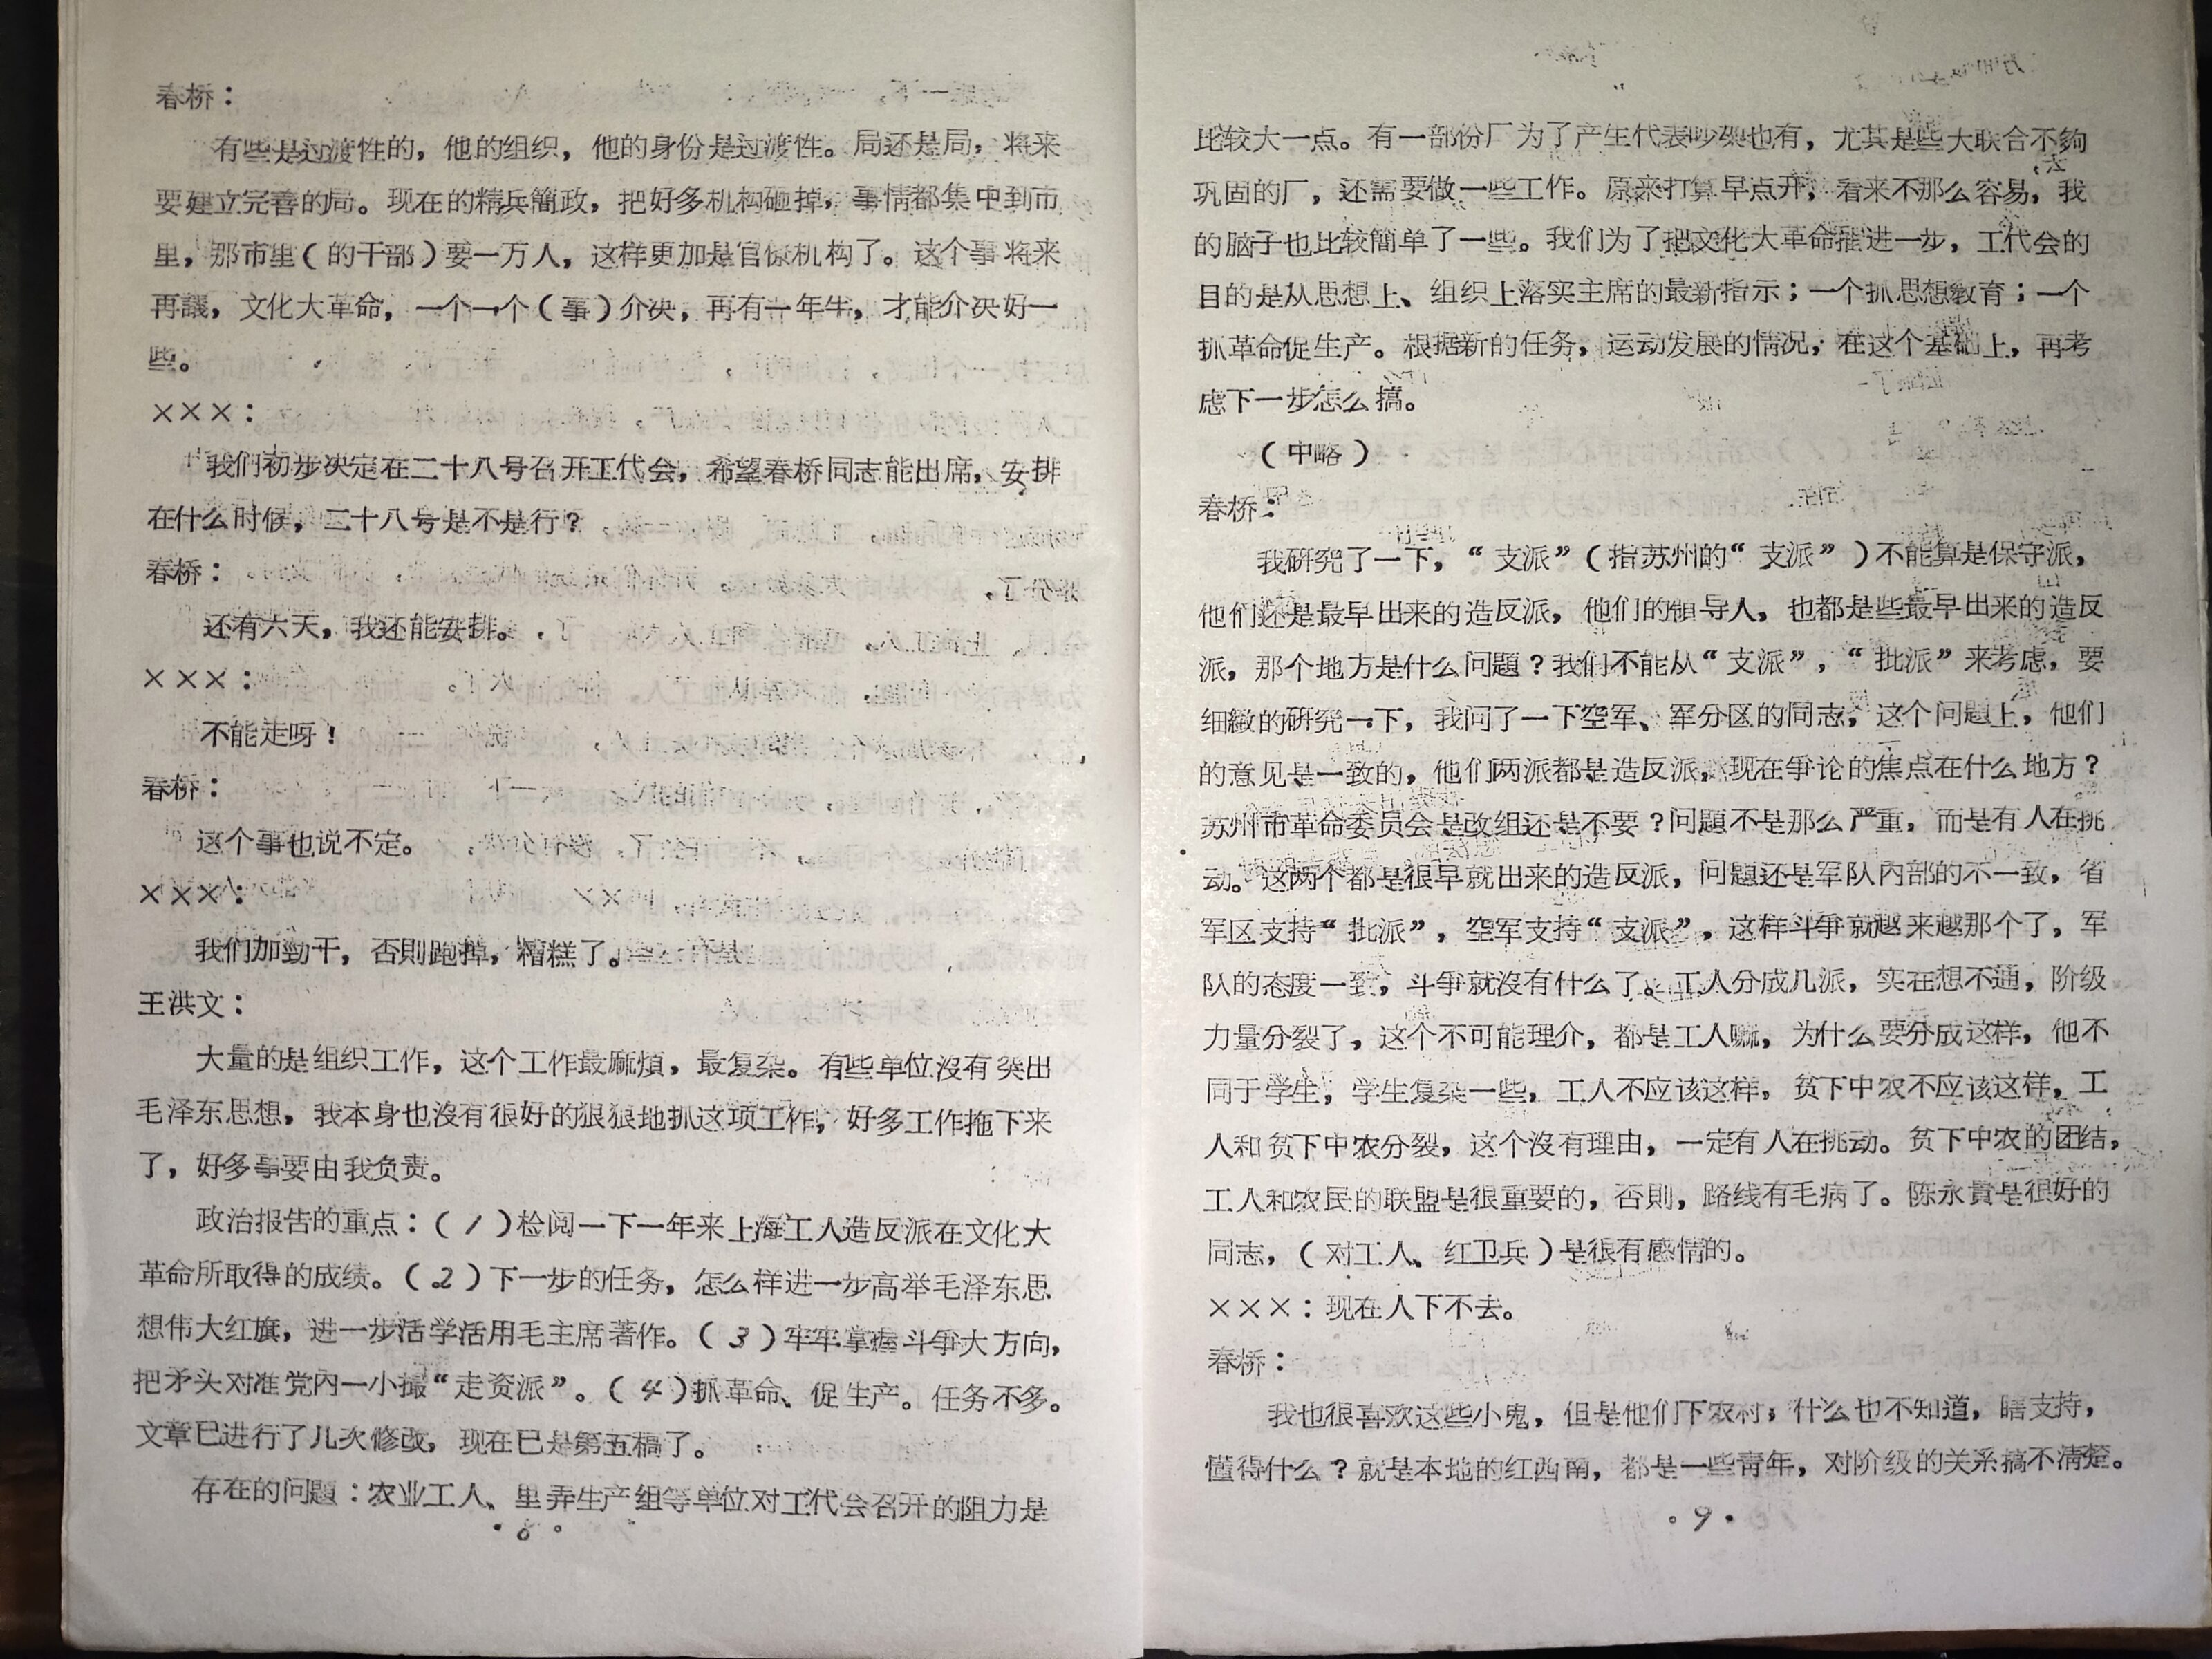 春桥：
有些是过渡性的，他的组织，他的身份是过渡性。局还是局，将来
要建立完善的局。现在的精兵簡政，把好多机构砸掉，事情都集中到市
里，那市里（的干部）要一万人，这样更加是官僚机构了。这个事将来
再議，文化大革命，一个一个（事）介决，再有一年半，才能介决好一
些。
×××：
我们初步决定在二十八号召开工代会，希望春桥同志能出席，安排
在什么时候，二十八号是不是行？
春桥：
还有六天，我还能安排。
×××：
不能走呀！
春桥：
这个事也说不定。
×××：
我们加勁干，否則跑掉，糟糕了。
王洪文：
大量的是组织工作，这个工作最麻煩，最复杂。有些单位沒有突出
毛泽东思想，我本身也沒有很好的狠狠地抓这项工作，好多工作拖下来
了，好多事要由我负责。
政治报告的重点：（1）检阅一下一年来上海工人造反派在文化大
革命所取得的成绩。（2）下一步的任务，怎么样进一步高举毛泽东思
想伟大红旗，进一步活学活用毛主席著作。（3）牢牢掌握斗爭大方向，
把矛头对准党内一小撮“走资派”。（4）抓革命、促生产。任务不多。
文章已进行了几次修改，现在已是第五稿了。
存在的问題：农业工人、里弄生产组等单位对工代会召开的阻力是
比较大一点。有一部份厂为了产生代表吵架也有，尤其是些大联合不夠
巩固的厂，还需要做一些工作。原来打算早点开，看来不那么容易，我
的脑子也比较簡单了一些。我们为了把文化大革命推进一步，工代会的
目的是从思想上、组织上落实主席的最新指示；一个抓思想敎育；一个
抓革命促生产。根据新的任务，运动发展的情况，在这个基础上，再考
虑下一步怎么搞。
（中略）
春桥：
我研究了一下，“支派”（指苏州的“支派”）不能算是保守派，
他们还是最早出来的造反派，他们的領导人，也都是些最早出来的造反
派，那个地方是什么问題？我们不能从“支派”，“批派”来考虑，要
细緻的研究一下，我问了一下空军、军分区的同志，这个问題上，他们
的意见是一致的，他们两派都是造反派，现在爭论的焦点在什么地方？
苏州市革命委员会是改组还是不要？问題不是那么严重，而是有人在挑
动。这两个都是很早就出来的造反派，问題还是军队內部的不一致，省
军区支持“批派”，空军支持“支派”，这样斗爭就越来越那个了，军
队的态度一致，斗爭就沒有什么了。工人分成几派，实在想不通，阶级
力量分裂了，这个不可能理介，都是工人嘛，为什么要分成这样，他不
同于学生，学生复杂一些，工人不应该这样，贫下中农不应该这样，工
人和贫下中农分裂，这个沒有理由，一定有人在挑动。贫下中农的团结，
工人和农民的联盟是很重要的，否則，路线有毛病了。陈永貴是很好的
同志，（对工人、红卫兵）是很有感情的。
×××：现在人下不去。
春桥：
我也很喜欢这些小鬼，但是他们下农村，什么也不知道，瞎支持，
懂得什么？就是本地的红西南，都是一些青年，对阶级的关系搞不清楚。
·9·